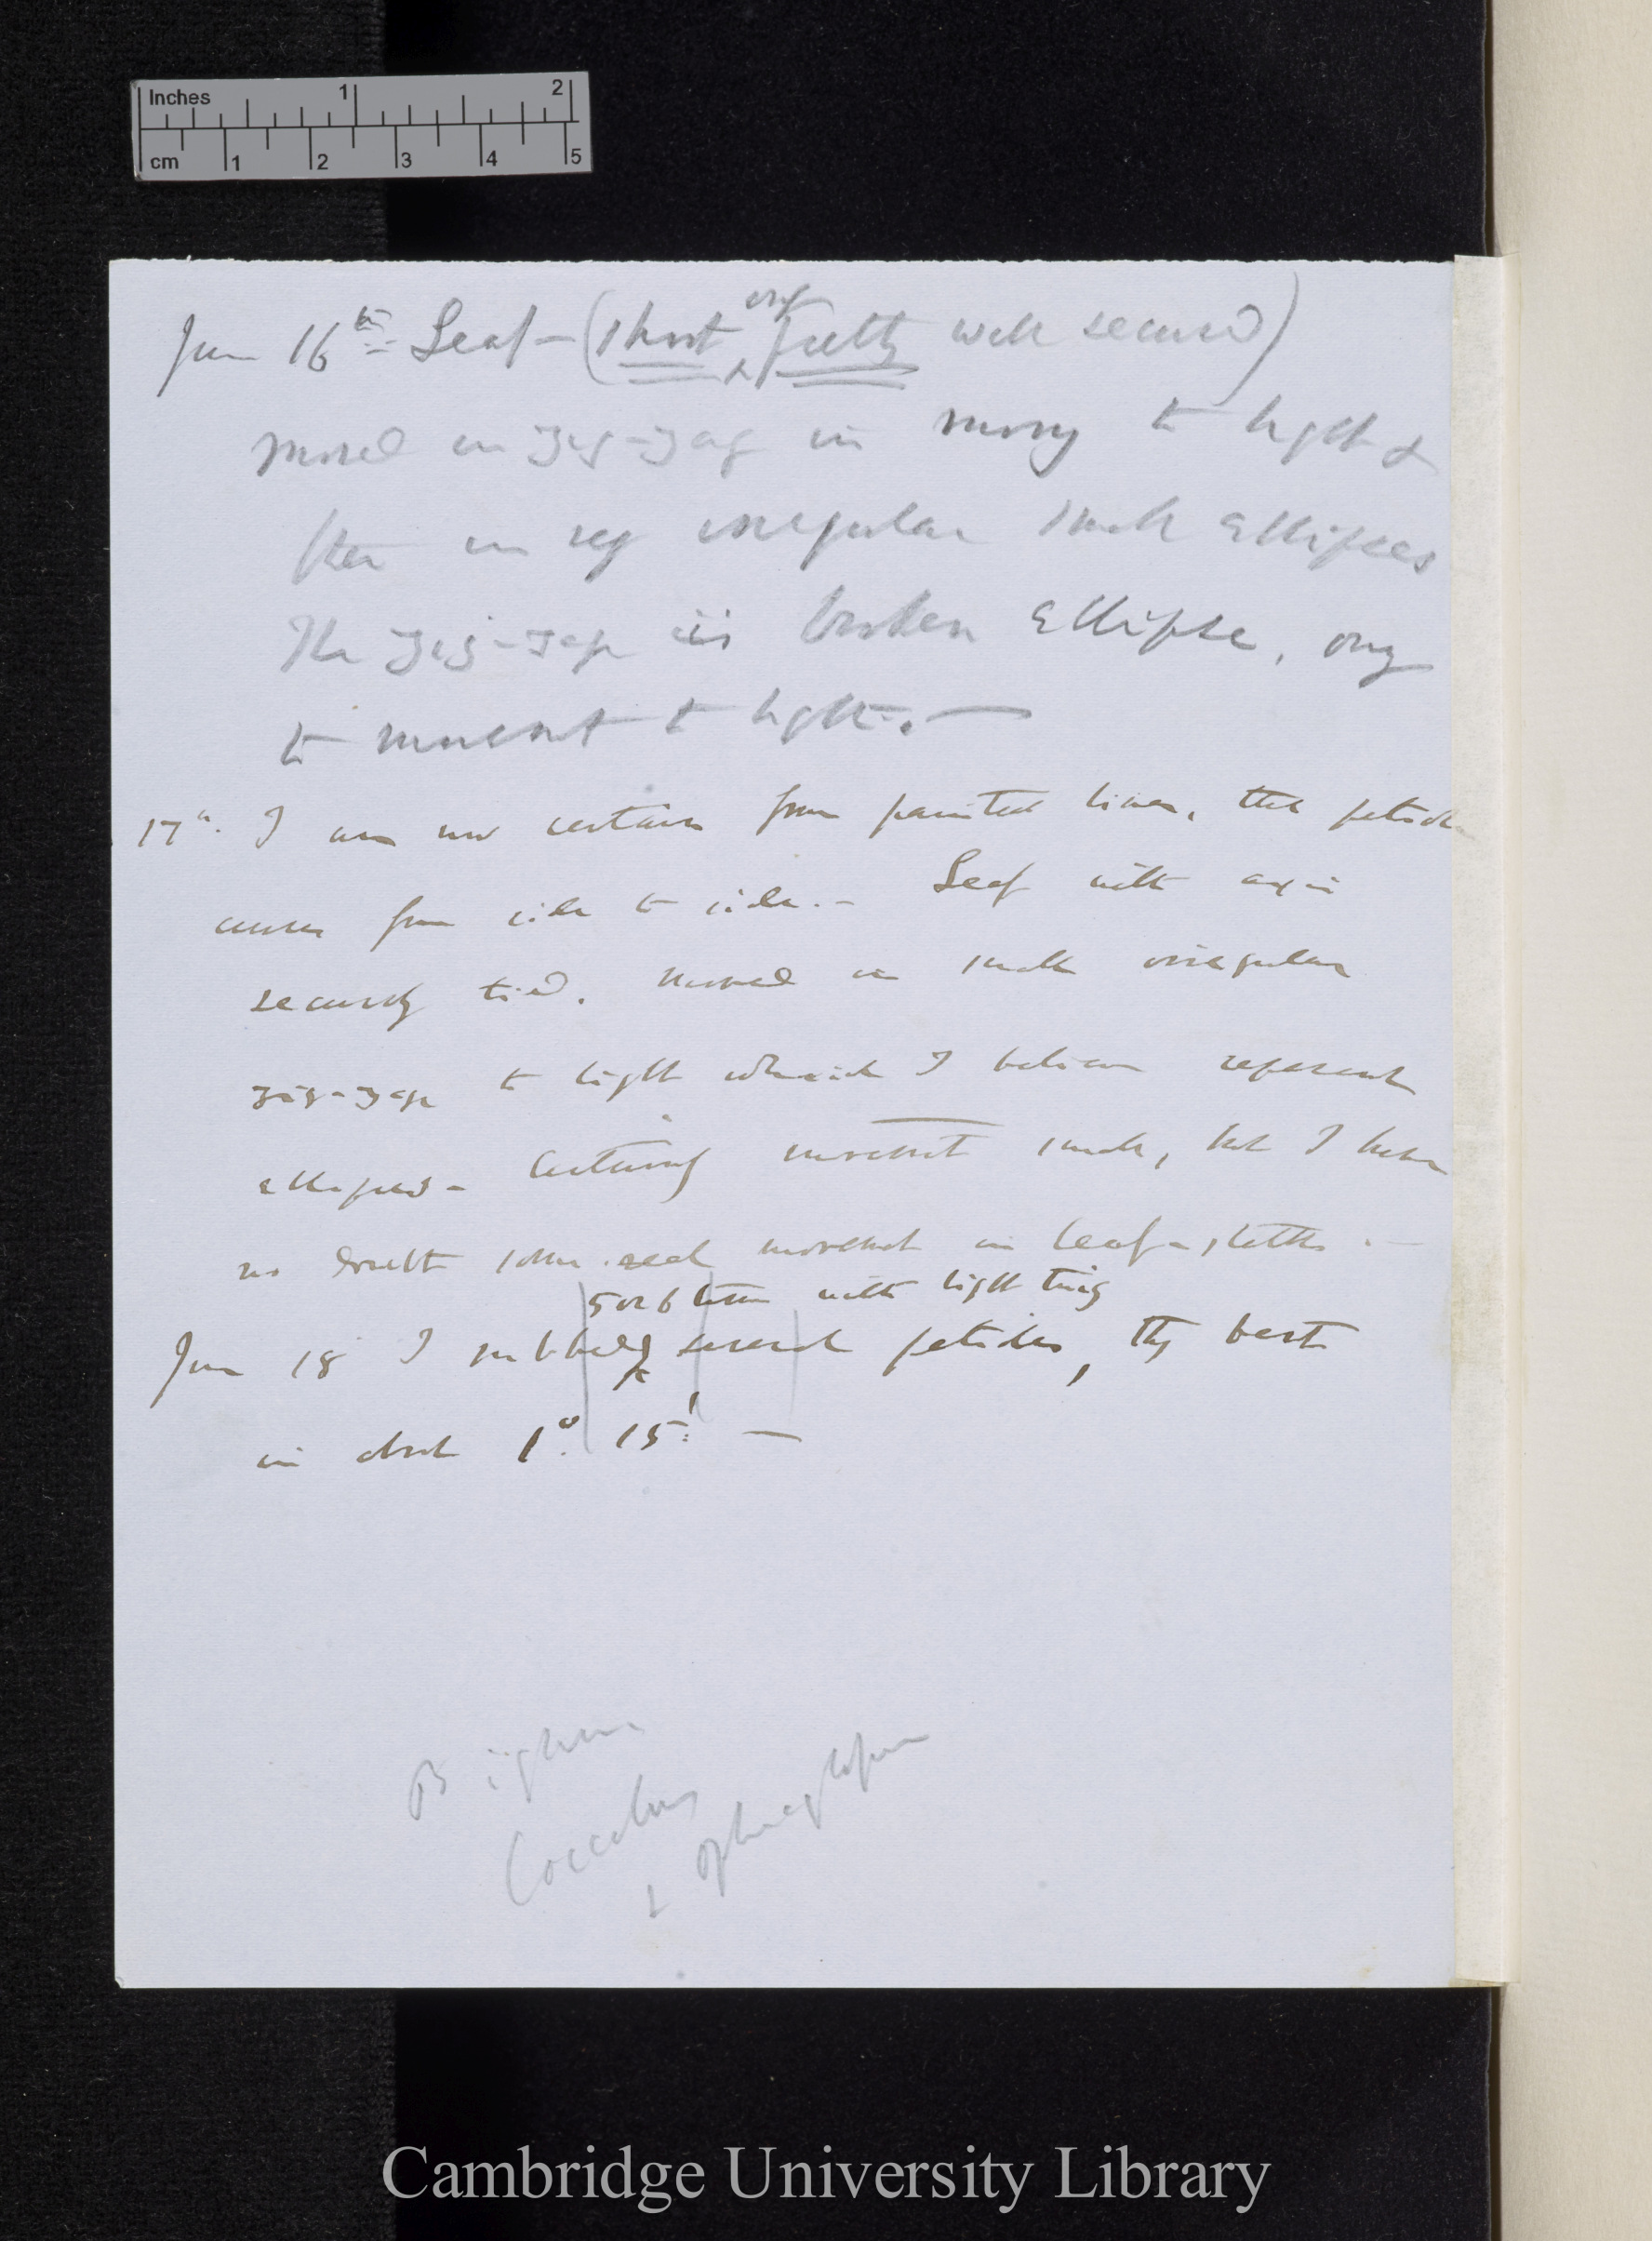 Inches 1 2
cm 1 2 3 4 5
June 16th Leaf — (shoot only pretty well secured)
moved in zig-zag in moving to light &
then in very irregular small ellipses
The zig-zag is broken ellipse, owing
to movement to light. —
17th. I am now certain from painted lines, that petiole
curves from side to side. — Leaf with axis
securely tied. moved in small irregular
zig-zags to light which I believe represent
ellipses — movement small, but I have
no doubt some real movement in leaf-
5 or 6 times with light twig
June 18 I rubbed several petioles, they bent
in about 1°. 15' —
B
Cocculus
&
Cambridge University Library